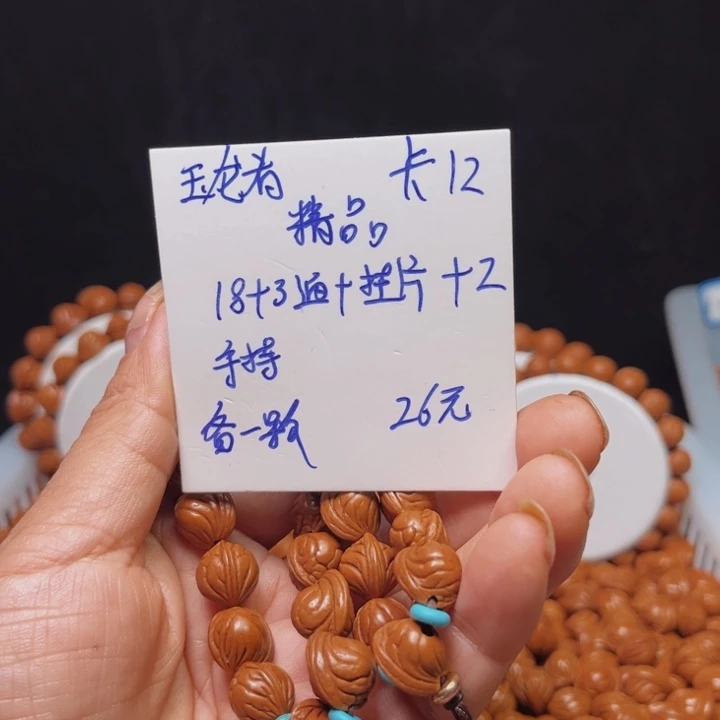 玉龙者 卡12
精品
18+3通+挂片+2
手持
备一颗 26元